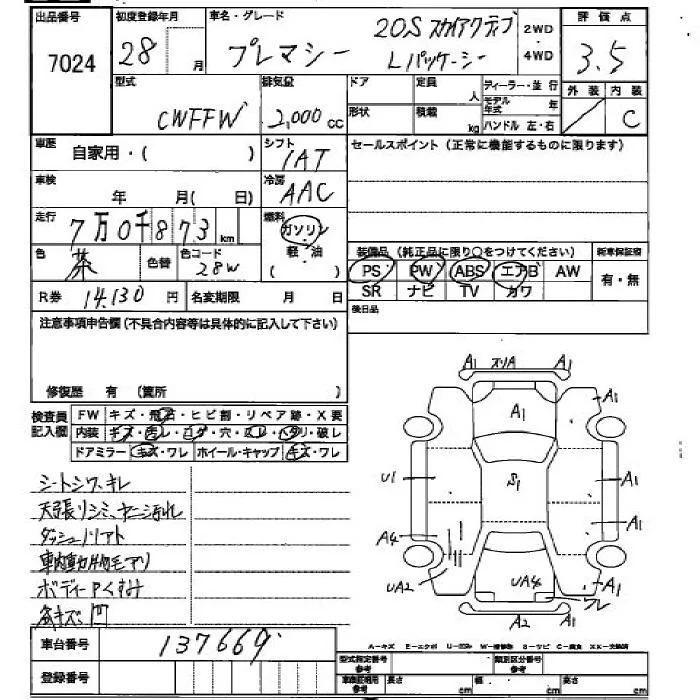 出品番号 初度登録年月 車名・グレード 20S スカイアクティブ 2WD 評価点
7024 28 月 プレマシー Lパッケージ 4WD 3.5
型式 排気量 ドア 定員 人 ディーラー・並行 外装 内装
CWFFW 2,000 cc 形状 積載 kg モデル年式 年 ハンドル 左・右 C
車歴 自家用・( ) シフト IAT セールスポイント (正常に機能するものに限ります)
車検 年 月( 日) 冷房 AAC
走行 7万0千873 km 燃料 ガソリン
軽・油
( )
色 茶 色替 色コード 28W 装備品 (純正品に限り○をつけてください) 新車保証書
PS PW ABS エアB AW 有・無
R券 14,130 円 名変期限 月 日 SR ナビ TV カワ
後日品
注意事項申告欄 (不具合内容等は具体的に記入して下さい)
修復歴 有 (箇所 )
検査員記入欄 FW キズ・飛石・ヒビ割・リペア跡・X要
内装 キズ・汚レ・コゲ・穴・スレ・ヘタリ・破レ
ドアミラー キズ・ワレ ホイール・キャップ キズ・ワレ
シートシワ、キレ
天張リシミ、ヤニ汚れ
ダッシュノリアト
車内動物毛アリ
ボディーPくすみ
各キズ凹
A1 スリA A1
A1 A1
U1 S1 A1
A4 A1
UA2 UA4 A1
ワレ
A2 A1
車台番号 137669
A-キズ E-エクボ
登録番号 型式指定番号 参考 類別区分番号 参考
車庫証明用 参考 長さ cm 幅 cm 高さ cm